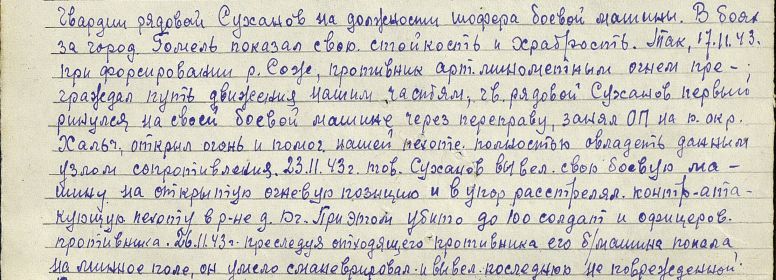 Гвардии рядовой Суханов на должности шофера боевой машины. В боях
за город Гомель показал свою стойкость и храбрость. Так, 17.11.43.
при форсировании р. Сож, противник арт. минометным огнем пре-
граждал путь движения нашим частям, гв. рядовой Суханов первый
ринулся на своей боевой машине через переправу, занял ОП на ю. окр.
Хальч, открыл огонь и помог нашей пехоте полностью овладеть данным
узлом сопротивления. 23.11.43г. тов. Суханов вывел свою боевую ма-
шину на открытую огневую позицию и в упор расстрелял контр-ата-
кующую пехоту в р-не д. Юг. При этом убито до 100 солдат и офицеров
противника. 26.11.43г. преследуя отходящего противника его б/машина попала
на минное поле, он умело сманеврировал и вывел последнюю не поврежденной.